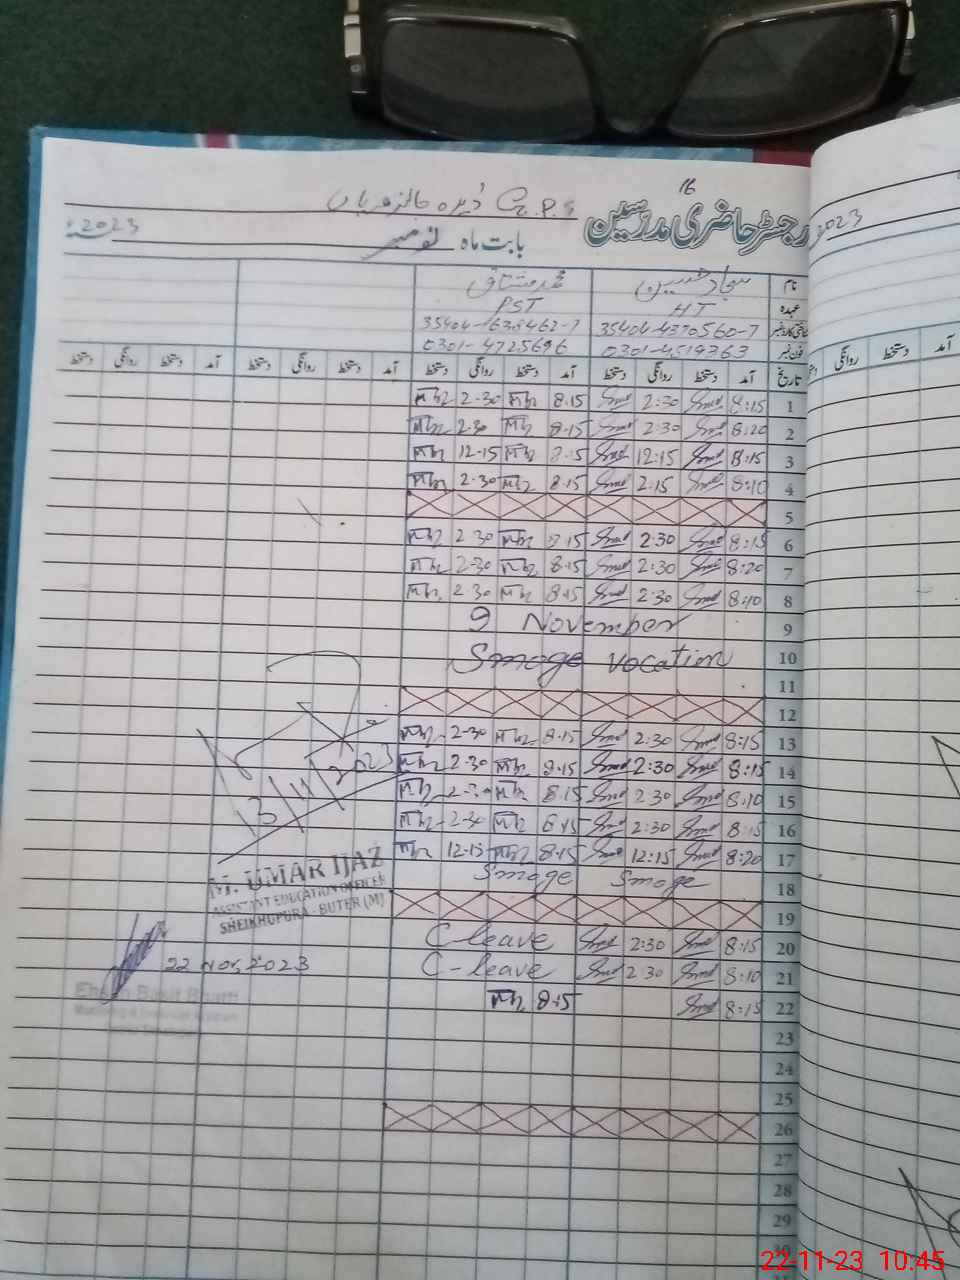 16
G.P.S ڈیرہ
رجسٹر حاضری مدرسین
2023
بابت ماہ نومبر 2023ء
نام سجاد حسین محمد مشتاق
عہدہ HT PST
شناختی کارڈ نمبر 35404-4370560-7 35404-1638462-7
فون نمبر 0301-4519363 0301-4725696
تاریخ آمد دستخط روانگی دستخط آمد دستخط روانگی دستخط آمد دستخط روانگی دستخط آمد دستخط روانگی دستخط
آمد دستخط روانگی
1 8:15 2:30 8.15 2-30
2 8:20 2:30 8.15 2.30
3 8:15 12:15 8.15 12-15
4 8:10 2:15 8.15 2.30
5
6 8:15 2:30 8.15 2.30
7 8:20 2:30 8.15 2-30
8 8:10 2:30 8.15 2.30
9 9 November
10 Smoge vocation
11
12
13 8:15 2:30 8.15 2-30
14 8:15 2:30 8.15 2.30
15 8:10 2:30 8.15 2-30
16 8:15 2:30 8.15 2-30
17 8:20 12:15 8.15 12-15
18 Smoge Smoge
19
20 8:15 2:30 C-leave
21 8:10 2:30 C-leave
22 8:15 8.15
23
24
25
26
27
28
29
30
13/11/2023
M. UMAR IJAZ
ASSISTANT EDUCATION OFFICER
SHEIKHUPURA - BUTER (M)
22 Nov, 2023
22-11-23 10:45